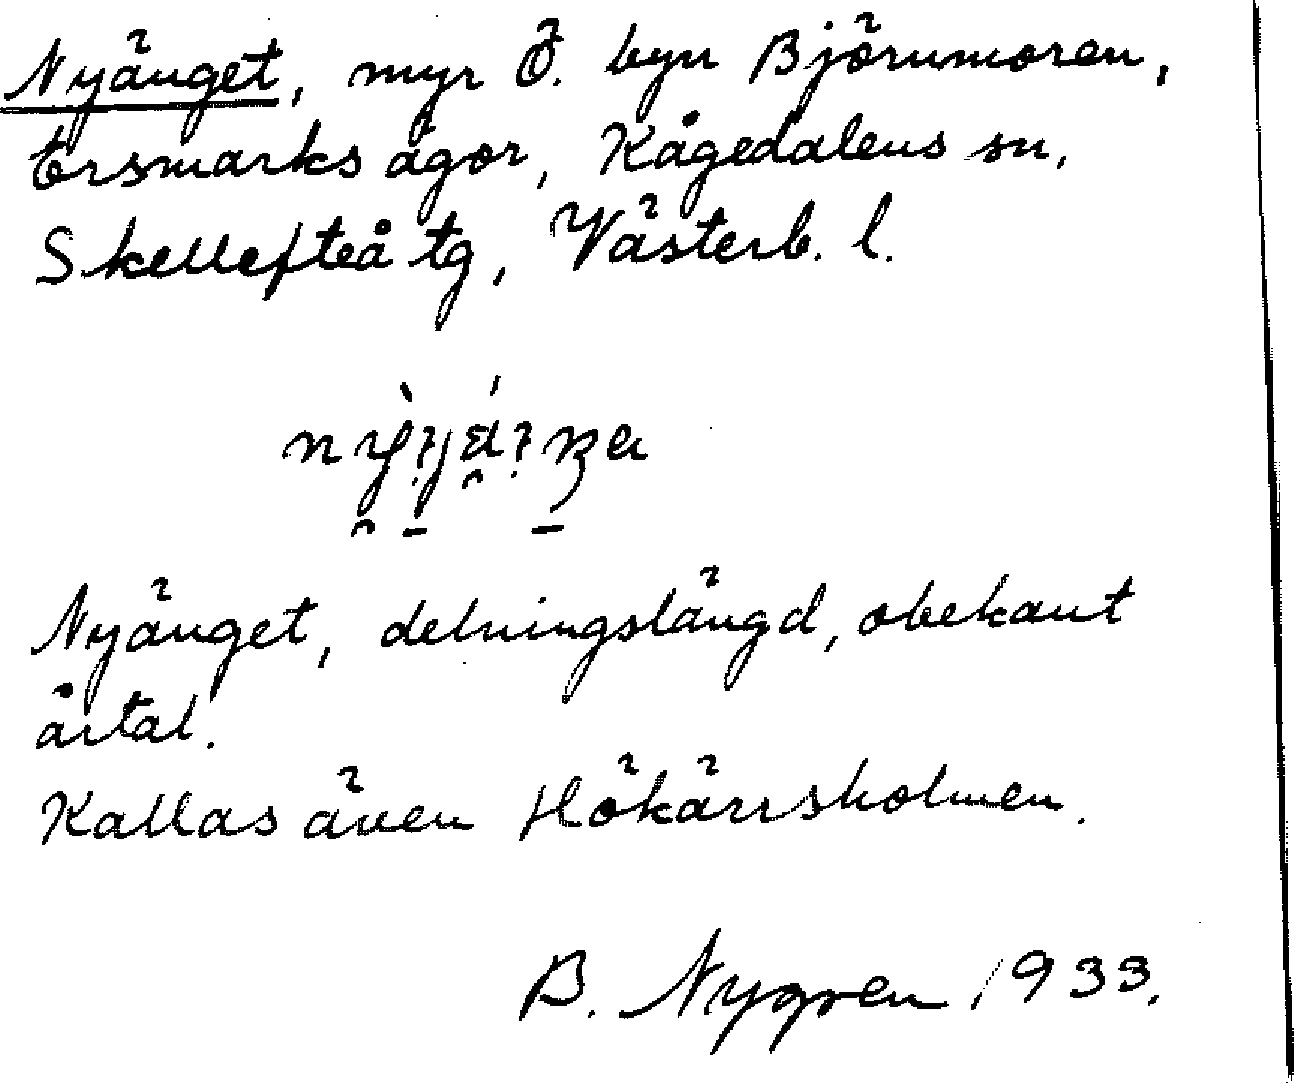 Nyänget, myr Ö. byn Björnmoren,
Ersmarks ägor, Kågedalens sn,
Skellefteå tg, Västerb. l.
Nyänget, delningslängd, obekant
årtal.
Kallas även Hökärrsholmen.
B. Nygren 1933.